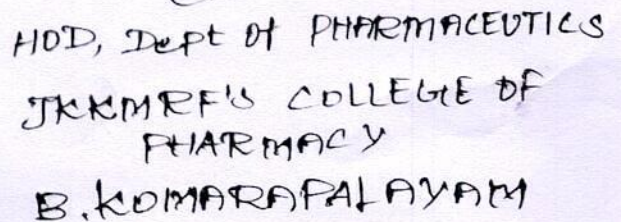 HOD, Dept of PHARMACEUTICS
JKKMRF'S COLLEGE OF
PHARMACY
B.KOMARAPALAYAM